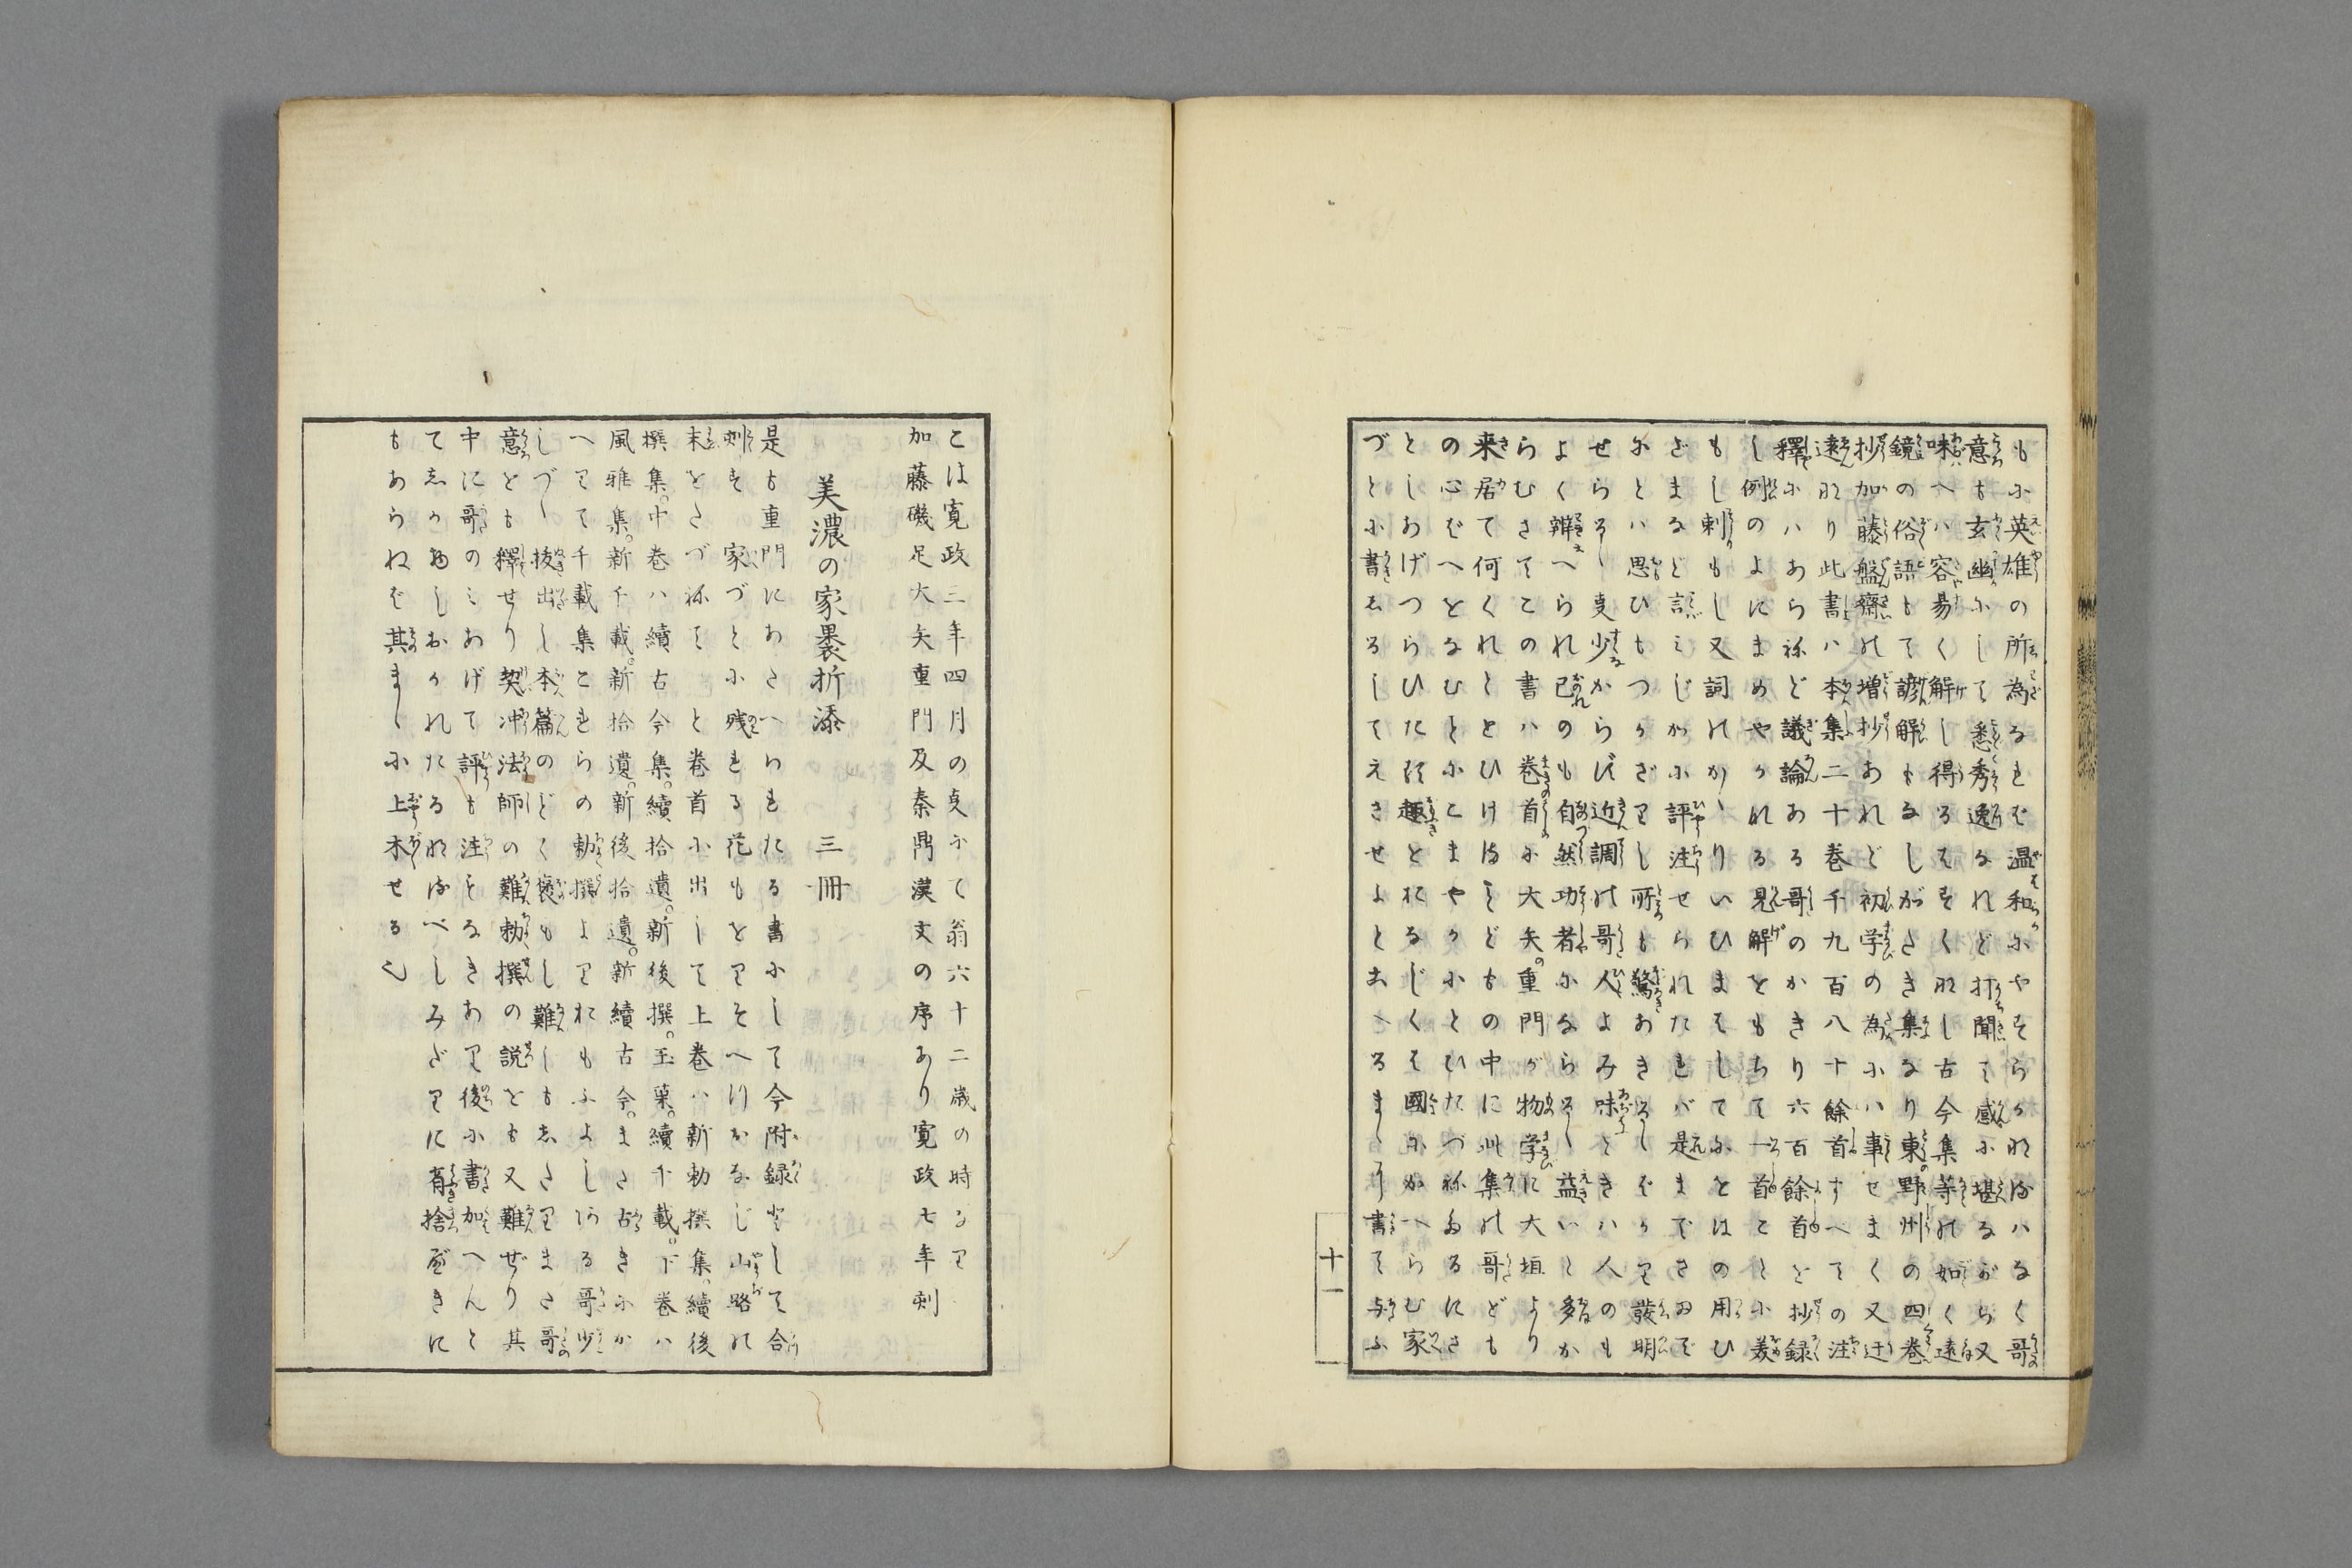 もに英雄の所為なれば温和にやすらかなるはなく哥
意も玄幽にして悉秀逸なれど打聞て感に堪るがら又
味へハ容易く解し得るはすくなし古今集等の如く遠
鏡の俗語もて諺解もなしがたき集なり東野州の四巻
抄加藤盤齋の増抄あれど初学の為にハ事せまく又迂
遠なり此書ハ本集二十巻千九百八十餘首すへての注
釋にハあらねど議論ある哥のかきり六百餘首を抄録
し例のよにまめやかなる見解をもちて一首ことに美
もし刺もし又詞のかゝりいひまはしてにをはの用ひ
ざまなど言ミじかに評注せられたれバ是まてさゐで
にとハ思ひもつかざりし所も驚あきるゝばかり發明
せらるゝ支少からず近調の哥人よみ味ときハ人のも
よく辨へられ己のも自然功者にならるゝ益いと多か
らむさてこの書ハ巻首に大矢の重門が物学に大垣より
来居て何くれととひけるミどもの中に此集の哥ども
の心ばへとなむとにこまやかにとひたづねゐるにさ
としあげつらひたる趣とおなじくは國にかへらむ家
づとに書しるしてえさせよとあへるまゝに書て与ふ
十一
こは寛政三年四月の支にて翁六十二歳の時なり
加藤磯足大矢重門及秦鼎漢文の序あり寛政七年刻
美濃の家裹折添　三冊
是も重門にあたへられたる書にして今附録として合
刻す家づとに残れる花もをりそへけかなじ山路の
末をたづねてと巻首に出して上巻ハ新勅撰集續後
撰集。中巻ハ續古今集。續拾遺。新後撰。玉葉。續千載。下巻ハ
風雅集。新千載。新拾遺。新後拾遺。新續古今。まさ古きにか
へりて千載集これらの勅撰よりおもふよしある哥少
しづゝ抜出し本篇のごとく褒もし難しもしたりまさ哥
意とも釋せり契冲法師の難勅撰の説とも又難ぜり其
中に哥のミあげて評も注もなきあり後に書加へんと
てしかゐしおかれたるなるべしみだりに斉捨べきに
もあらねば其まゝに上木せる也